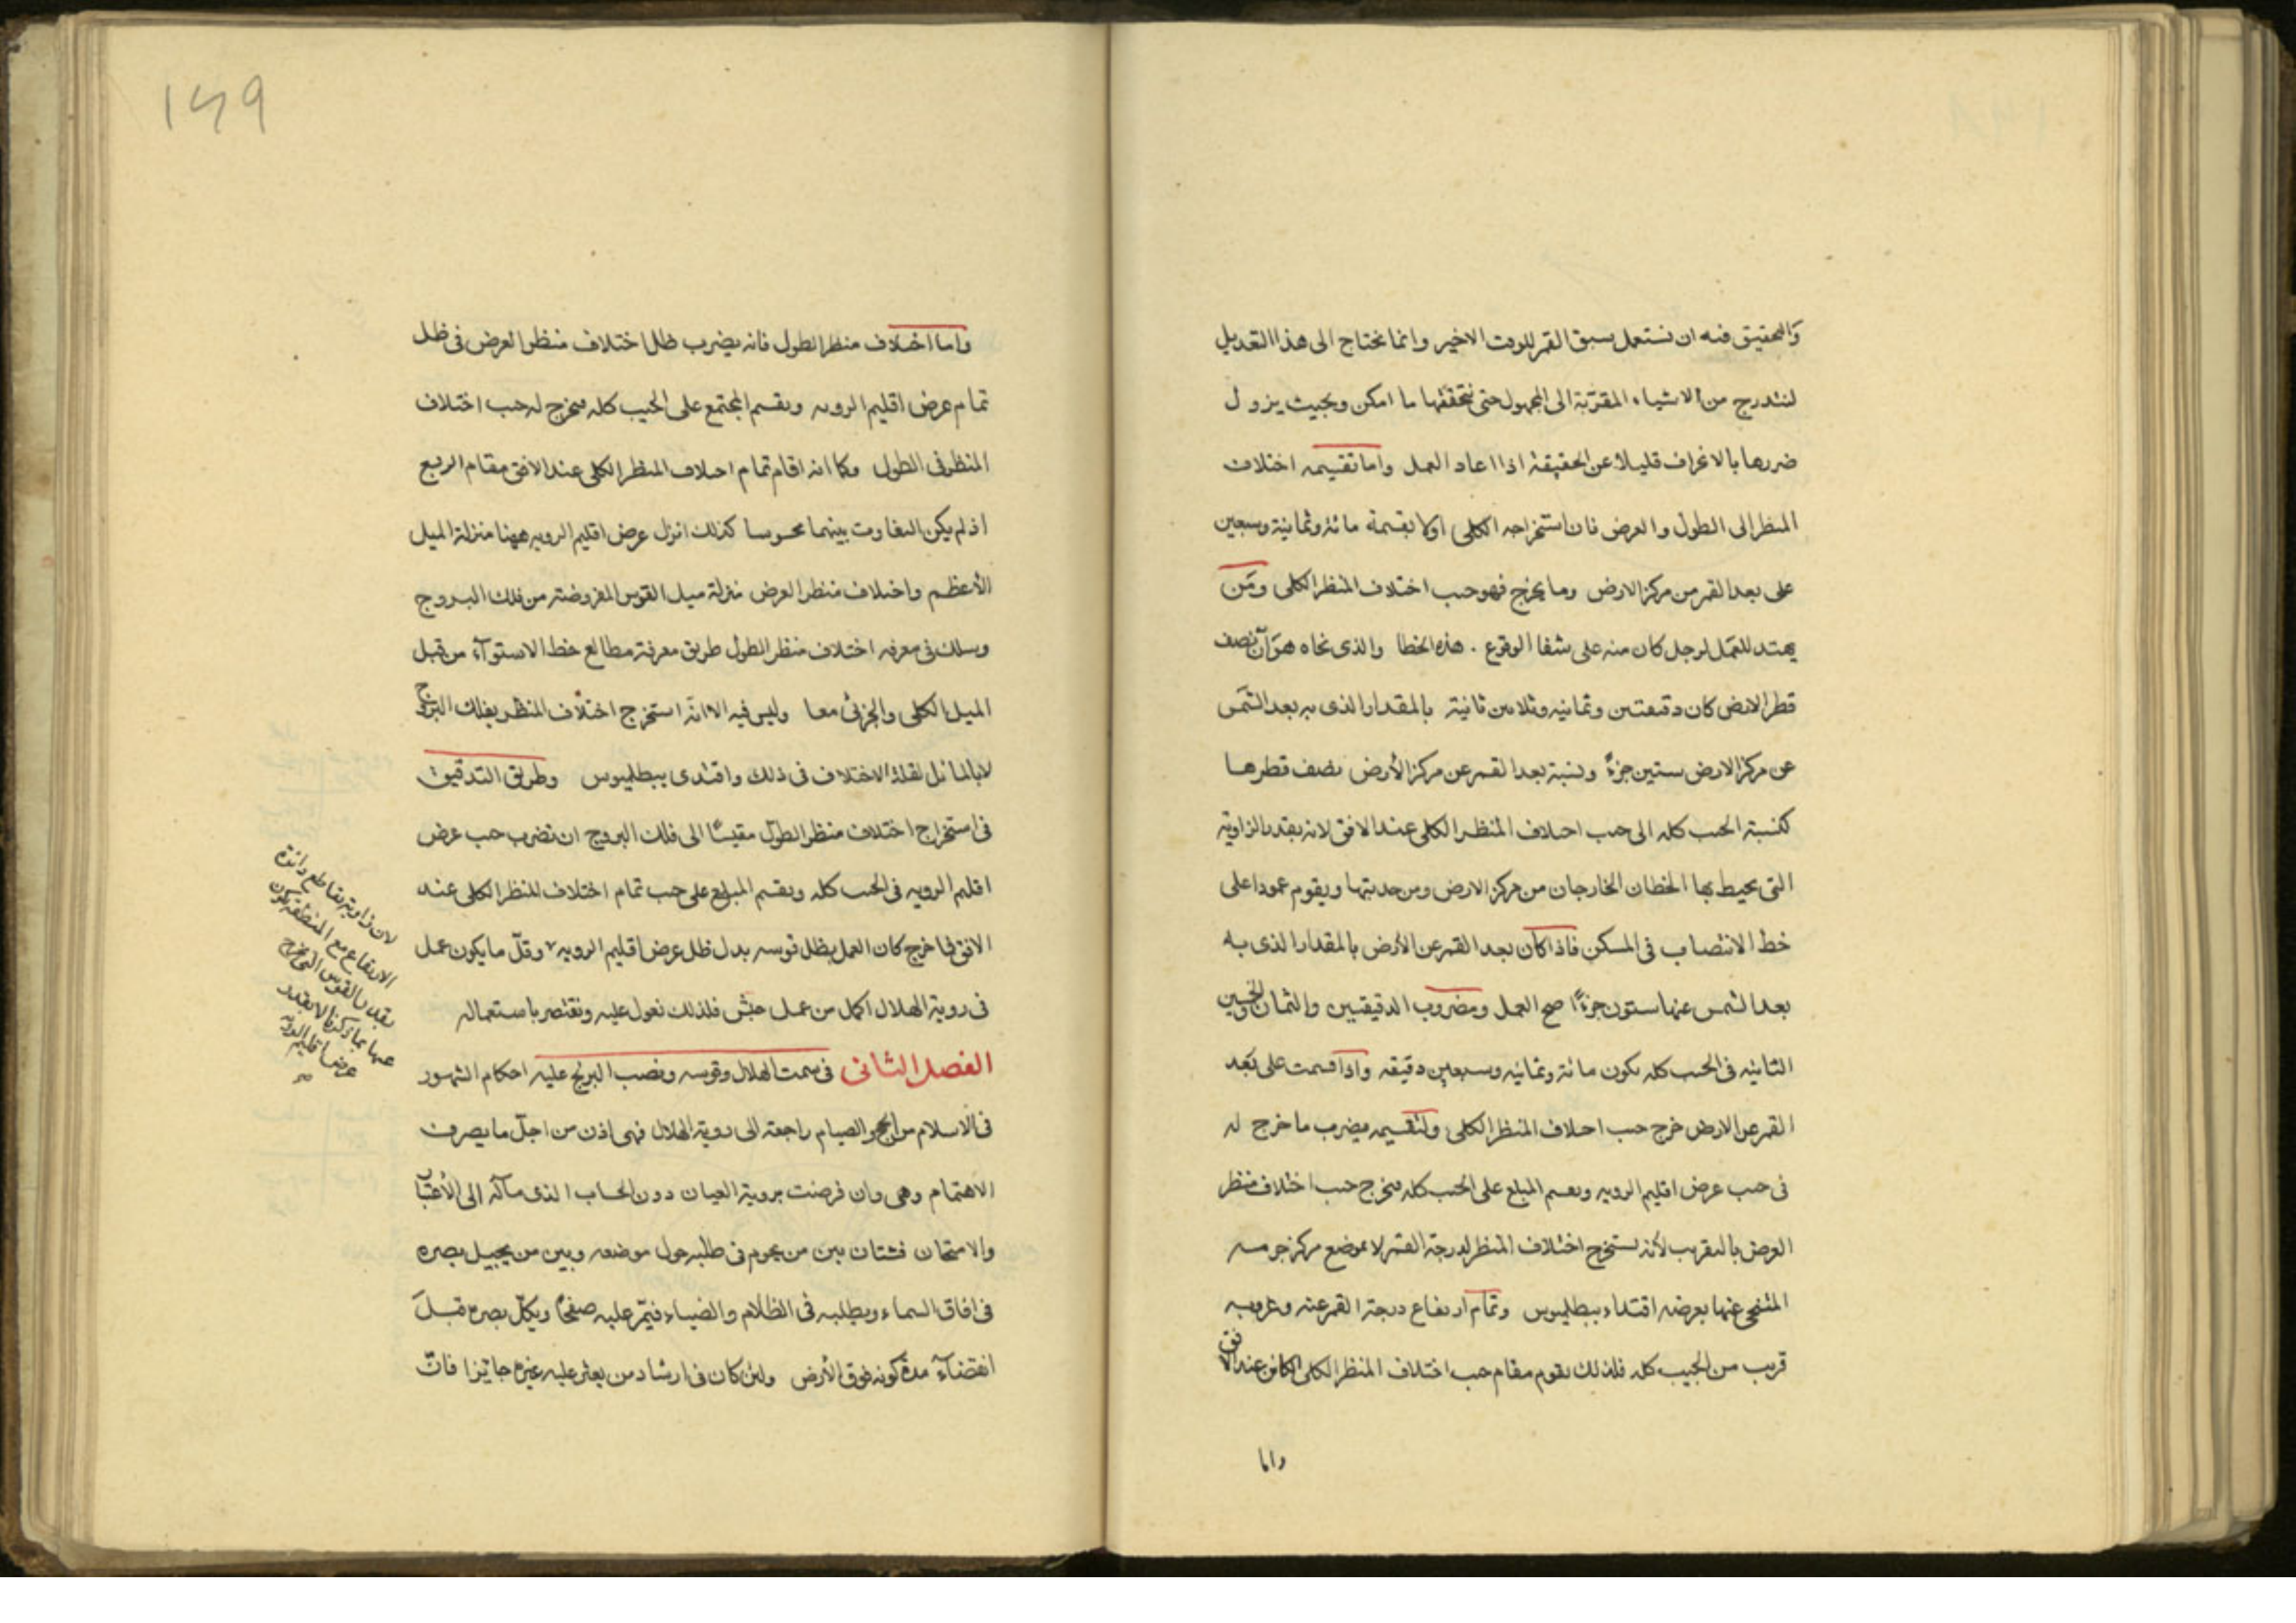 والتحقيق فيه ان نستعمل سبق القمر للوقت الاخير وانما نحتاج الى هذا التعديل
لنتدرج من الاشياء المقربة الى المجهول حتى نتحققها ما امكن وبحيث يزول
ضررها بالانحراف قليلا عن الحقيقة اذا اعاد العمل واما تقسيمه اختلاف
المنظر الى الطول والعرض فان استخراجه الكلى اولا بقسمة مائة وثمانية وسبعين
على بعد القمر من مركز الارض وما يخرج فهو جيب اختلاف المنظر الكلى ومن
يهتد للعمل لرجل كان منه على شفا الوقوع . هذه الخطا والذى نحاه هو ان نصف
قطر الارض كان دقيقتين وثمانيه وثلاثين ثانية بالمقدار الذى به بعد الشمس
عن مركز الارض ستين جزءً ونسبة بعد القمر عن مركز الأرض نصف قطرها
كنسبة الجيب كله الى جيب اختلاف المنظر الكلى عند الافق لانه بقدر الزاوية
التى يحيط بها الخطان الخارجان من مركز الارض ومن حدبتها ويقوم عمودا على
خط الانتصاب فى المسكن فاذا كان بعد القمر عن الأرض بالمقدار الذى به
بعد الشمس عنها ستون جزءًا صح العمل ومضروب الدقيقتين والثمان والخمسين
الثانيه فى الجيب كله يكون مائة وثمانيه وسبعين دقيقه واذا قسمت على بعد
القمر عن الارض خرج جيب اختلاف المنظر الكلى ولتقسيمه يضرب ما خرج له
فى جيب عرض اقليم الرويه ويقسم المبلغ على الجيب كله فيخرج جيب اختلاف منظر
العرض بالتقريب لأنه يستخرج اختلاف المنظر لدرجة القمر لا لموضع مركز جرمه
المتنحى عنها بعرضه اقتداء ببطليموس وتمام ارتفاع درجة القمر عند غروبه
قريب من الجيب كله فلذلك يقوم مقام جيب اختلاف المنظر الكلى الكائن عند الافق
واما
149
واما اختلاف منظر الطول فانه يضرب ظل اختلاف منظر العرض فى ظل
تمام عرض اقليم الرويه ويقسم المجتمع على الجيب كله فيخرج له جيب اختلاف
المنظر فى الطول وكما انه اقام تمام اختلاف المنظر الكلى عند الافق مقام الربع
اذ لم يكن التفاوت بينهما محسوسا كذلك انزل عرض اقليم الرويه ههنا منزلة الميل
الأعظم واختلاف منظر العرض منزلة ميل القوس المفروضة من فلك البروج
وسلك فى معرفه اختلاف منظر الطول طريق معرفة مطالع خط الاستوآء من قبل
الميل الكلى والجزئى معا وليس فيه الا انه استخرج اختلاف المنظر بفلك البروج
لا بالمائل لقلة الاختلاف فى ذلك واقتدى ببطليموس وطريق التدقيق
فى استخراج اختلاف منظر الطول مقيسًا الى فلك البروج ان نضرب جيب عرض
اقليم الرويه فى الجيب كله ويقسم المبلغ على جيب تمام اختلاف المنظر الكلى عند
الافق فما خرج كان العمل بظل قوسه بدل ظل عرض اقليم الرويه وقلّ ما يكون عمل
فى روية الهلال اكمل من عمل حبش فلذلك نعول عليه ونقتصر باستعماله
الفصل الثانى فى سمت الهلال وقوسه ونصب البربخ عليه احكام الشهور
فى الاسلام من الحج والصيام راجعة الى روية الهلال فهى اذن من اجلّ ما يصرف
الاهتمام وهى وان فرضت بروية العيان دون الحساب الذى مآله الى الأعتبار
والامتحان فشتان بين من يحوم فى طلبه حول موضعه وبين من يجيل بصره
فى افاق السماء ويطلبه فى الظلام والضياء فيمّر عليه صفحًا ويكلّ بصره قبل
انقضآء مدة كونه فوق الأرض ولئن كان فى ارشاد من يعثر عليه غيره جائزا فانّ
لان زاوية تقاطع دائرة
الارتفاع مع المنطقة تكون
بقدر القوس التى يخرج
عنها بما ذكرنا لا بقدر
عرض اقليم الرويه